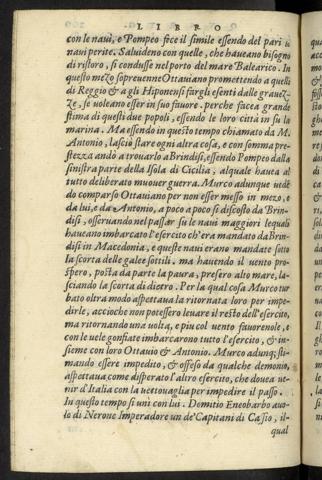 LIBRO
con le navi, e Pompeo fece il simile essendo del pari i
navi perite. Saluideno con quelle, che haueano bisogno
di ristoro, si condusse nel porto del mare Balearico. In
questo mezo soprauenne Ottauiano promettendo a quelli
di Reggio & a gli Hiponensi fargli esenti dalle grauez-
ze, se uoleano esser in suo fauore. perche facea grande
stima di questi due popoli, essendo le loro città in su la
marina. Ma essendo in questo tempo chiamato da M.
Antonio, lasciò stare ogni altra cosa, e con somma pre-
stezza andò a trouarlo a Brindisi, essendo Pompeo dalla
sinistra parte della Isola di Cicilia, alquale hauea al
tutto deliberato muouer guerra. Murco adunque uedē
do comparso Ottauiano per non esser messo in mezo, e
da lui, e da Antonio, a poco a poco si discostò da Brin-
disi, osseruando nel passar su le naui maggiori lequali
haueano imbarcato l'esercito ch'era mandato da Brin-
disi in Macedonia, e queste naui erano mandate sotto
la scorta delle galee sottili. ma hauendo il uento pro-
spero, posta da parte la paura, presero alto mare, la-
sciando la scorta di dietro. Per la qual cosa Murco tur
bato oltra modo aspettaua la ritornata loro per impe-
dirle, accioche non potessero leuare il resto dell'esercito,
ma ritornando una uolta, e piu col uento fauoreuole, e
con le uele gonfiate imbarcarono tutto l'esercito, & in-
sieme con loro Ottauio & Antonio. Murco adunq; sti-
mando essere impedito, & offeso da qualche demonio,
aspettaua come disperato l'altro esercito, che douea ue-
nir d'Italia con la uettouaglia per impedire il passo.
In questo tempo si unì con lui. Domitio Eneobarbo auo-
lo di Nerone Imperadore un de' Capitani di Casio, il-
qual